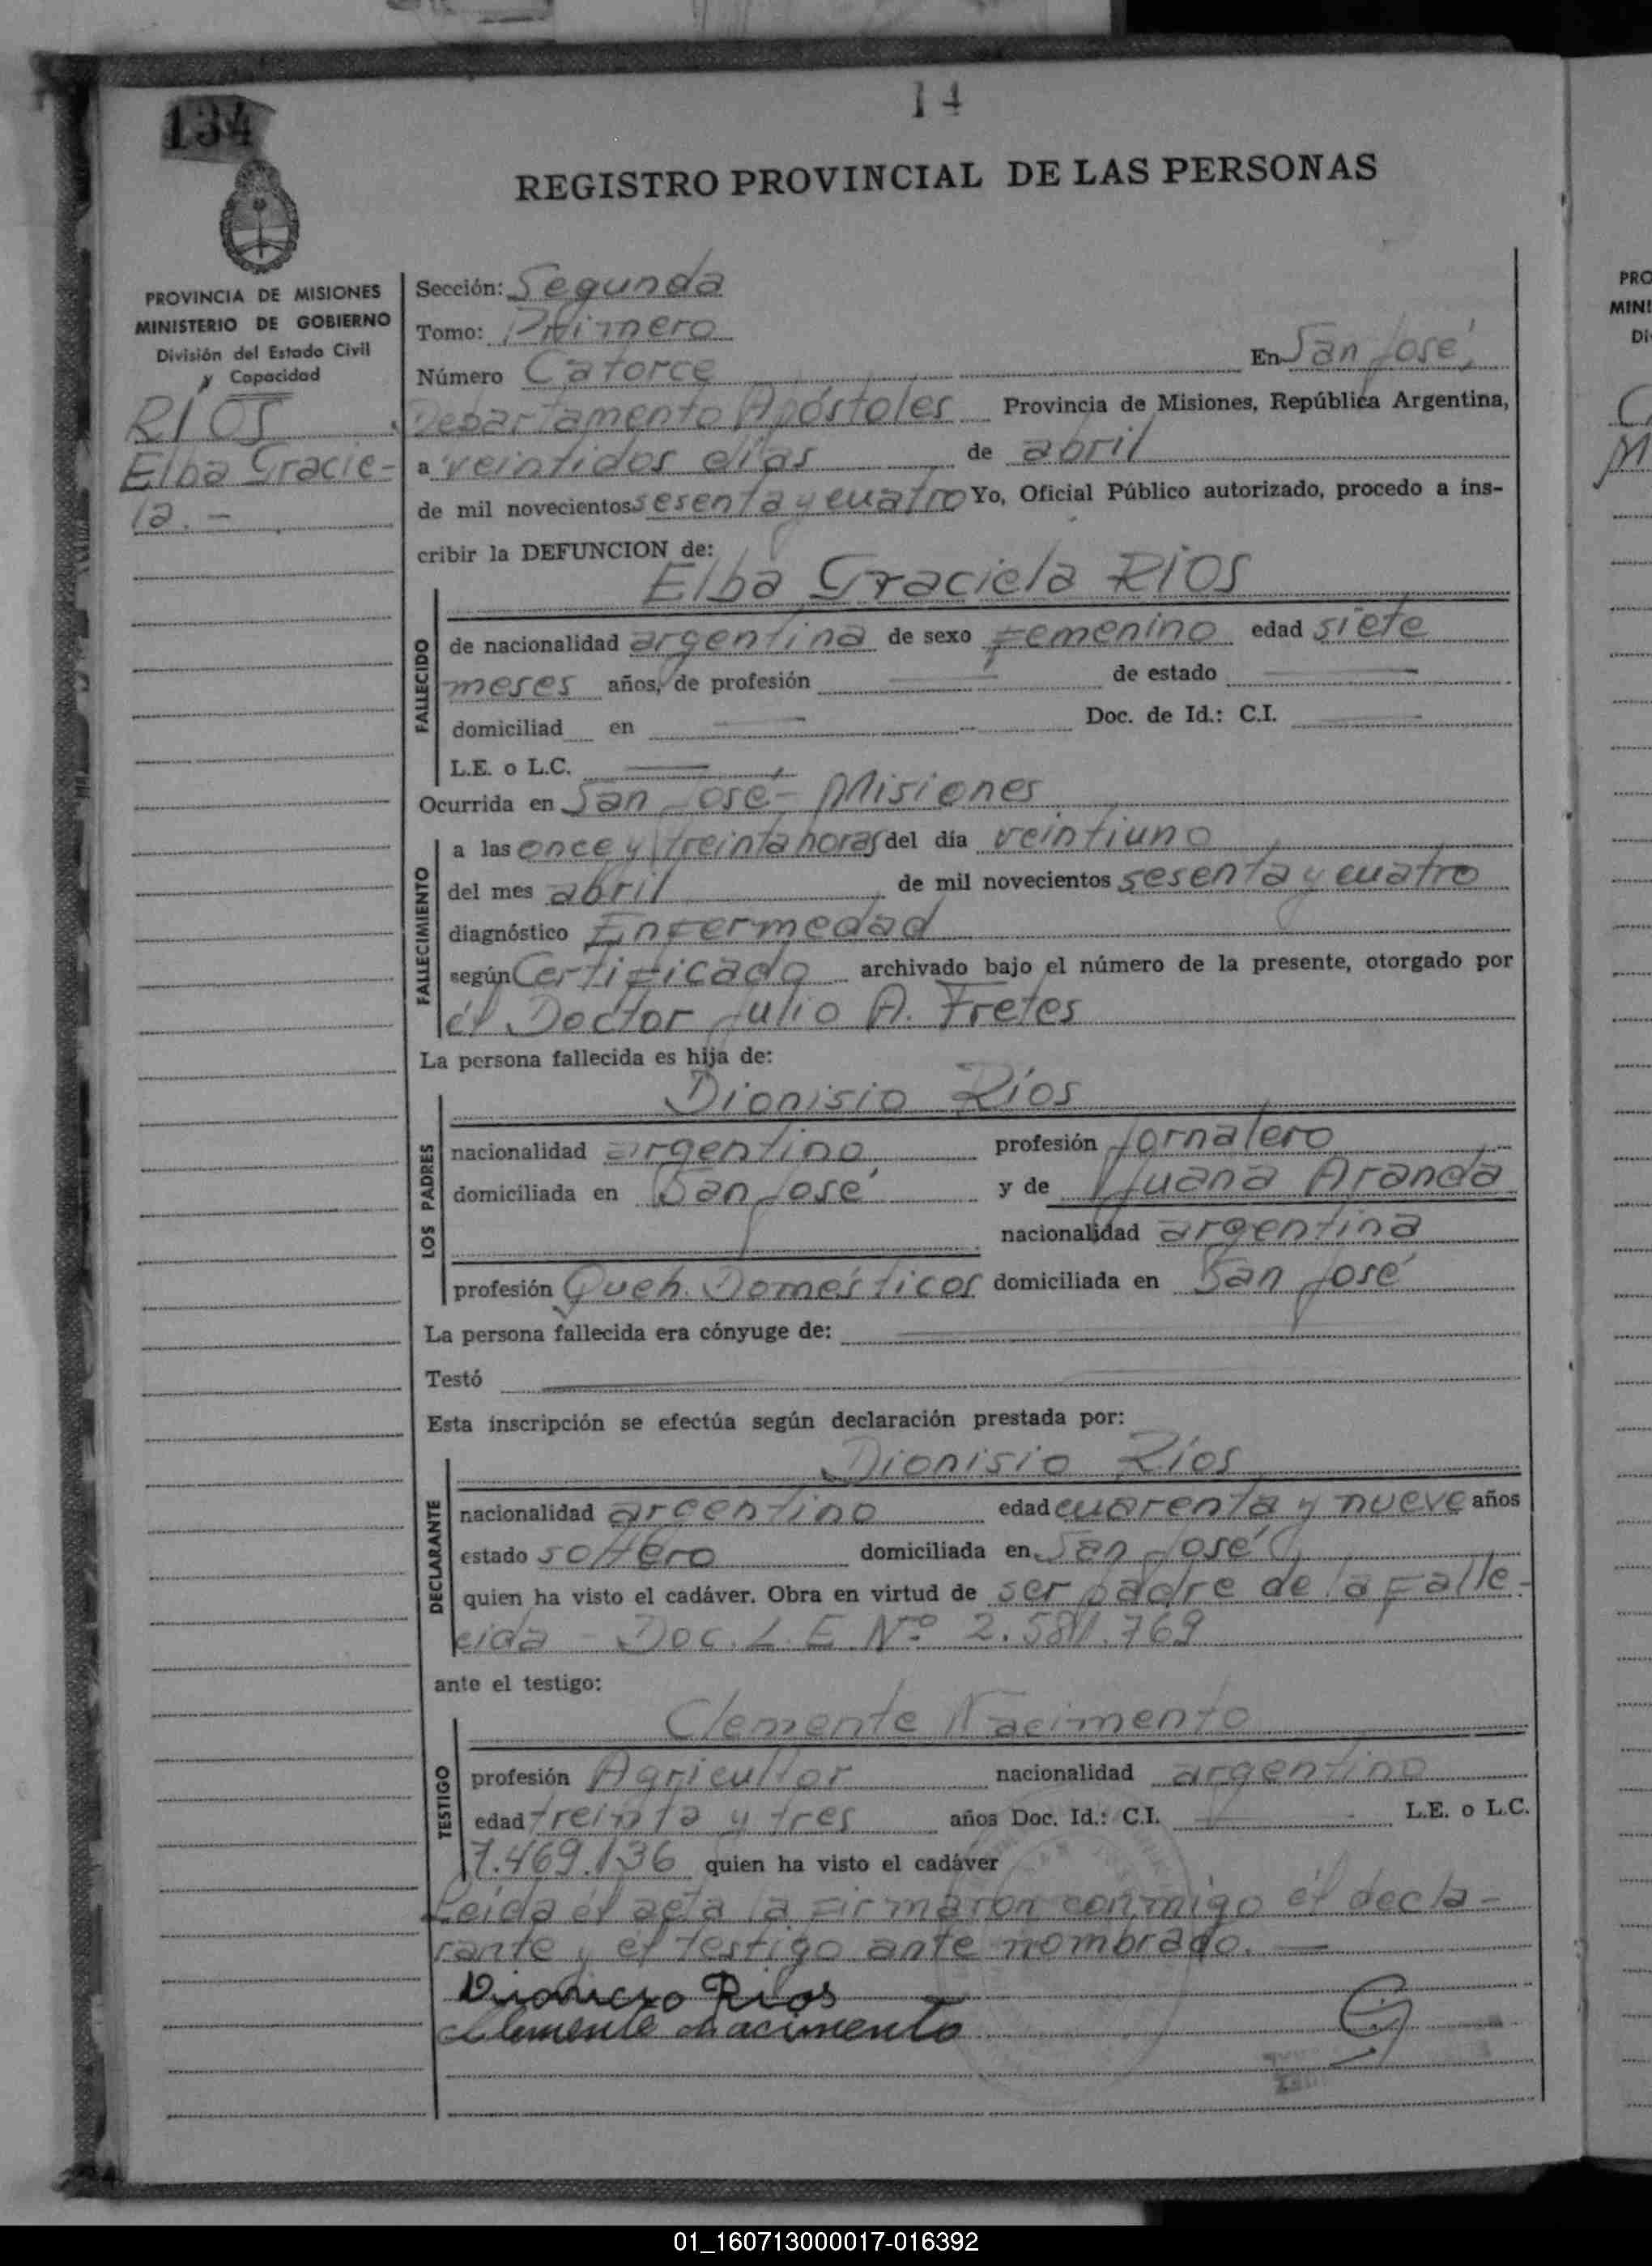 134
14
REGISTRO PROVINCIAL DE LAS PERSONAS
PROVINCIA DE MISIONES
MINISTERIO DE GOBIERNO
División del Estado Civil
y Capacidad
RÍOS
Elba Gracie-
la.-
Sección: Segunda
Tomo: Primero
Número Catorce En San José,
Departamento Apóstoles Provincia de Misiones, República Argentina,
a veintidos días de abril
de mil novecientos sesenta y cuatro Yo, Oficial Público autorizado, procedo a ins-
cribir la DEFUNCION de:
Elba Graciela RIOS
FALLECIDO
de nacionalidad argentina de sexo femenino edad siete
meses años, de profesión — de estado —
domiciliad en — Doc. de Id.: C.I. —
L.E. o L.C. —
Ocurrida en San José - Misiones
FALLECIMIENTO
a las once y treinta horas del día veintiuno
del mes abril de mil novecientos sesenta y cuatro
diagnóstico Enfermedad
según Certificado archivado bajo el número de la presente, otorgado por
él Doctor Julio A. Fretes
La persona fallecida es hija de:
Dionisio Ríos
LOS PADRES
nacionalidad argentino profesión Jornalero
domiciliada en San José y de Juana Aranda
nacionalidad argentina
profesión Queh. Domésticos domiciliada en San José
La persona fallecida era cónyuge de: —
Testó —
Esta inscripción se efectúa según declaración prestada por:
Dionisio Ríos
DECLARANTE
nacionalidad argentino edad cuarenta y nueve años
estado soltero domiciliada en San José
quien ha visto el cadáver. Obra en virtud de ser padre de la falle-
cida - Doc. L.E. Nº 2.581.769
ante el testigo:
Clemente Nacimento
TESTIGO
profesión Agricultor nacionalidad argentino
edad treinta y tres años Doc. Id.: C.I. — L.E. o L.C.
7.469.136 quien ha visto el cadáver
Leída él acta la firmaron conmigo él decla-
rante y el testigo ante nombrado. —
Dionicio Rios
Clemente Nacimento
PRO
MINI
Di
01_160713000017-016392